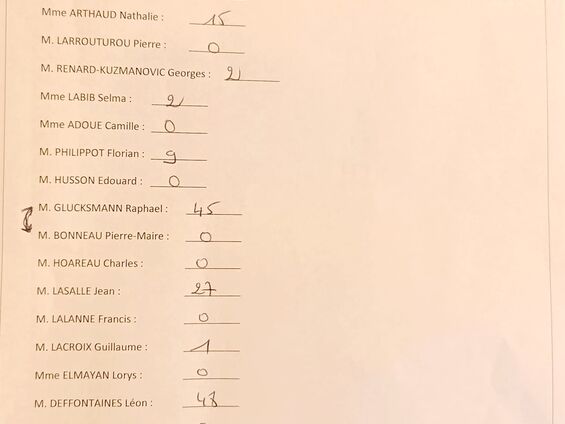 Mme ARTHAUD Nathalie : 15
M. LARROUTUROU Pierre : 0
M. RENARD-KUZMANOVIC Georges : 2
Mme LABIB Selma : 2
Mme ADOUE Camille : 0
M. PHILIPPOT Florian : 9
M. HUSSON Edouard : 0
M. GLUCKSMANN Raphael : 45
M. BONNEAU Pierre-Maire : 0
M. HOAREAU Charles : 0
M. LASALLE Jean : 27
M. LALANNE Francis : 0
M. LACROIX Guillaume : 1
Mme ELMAYAN Lorys : 0
M. DEFFONTAINES Léon : 48